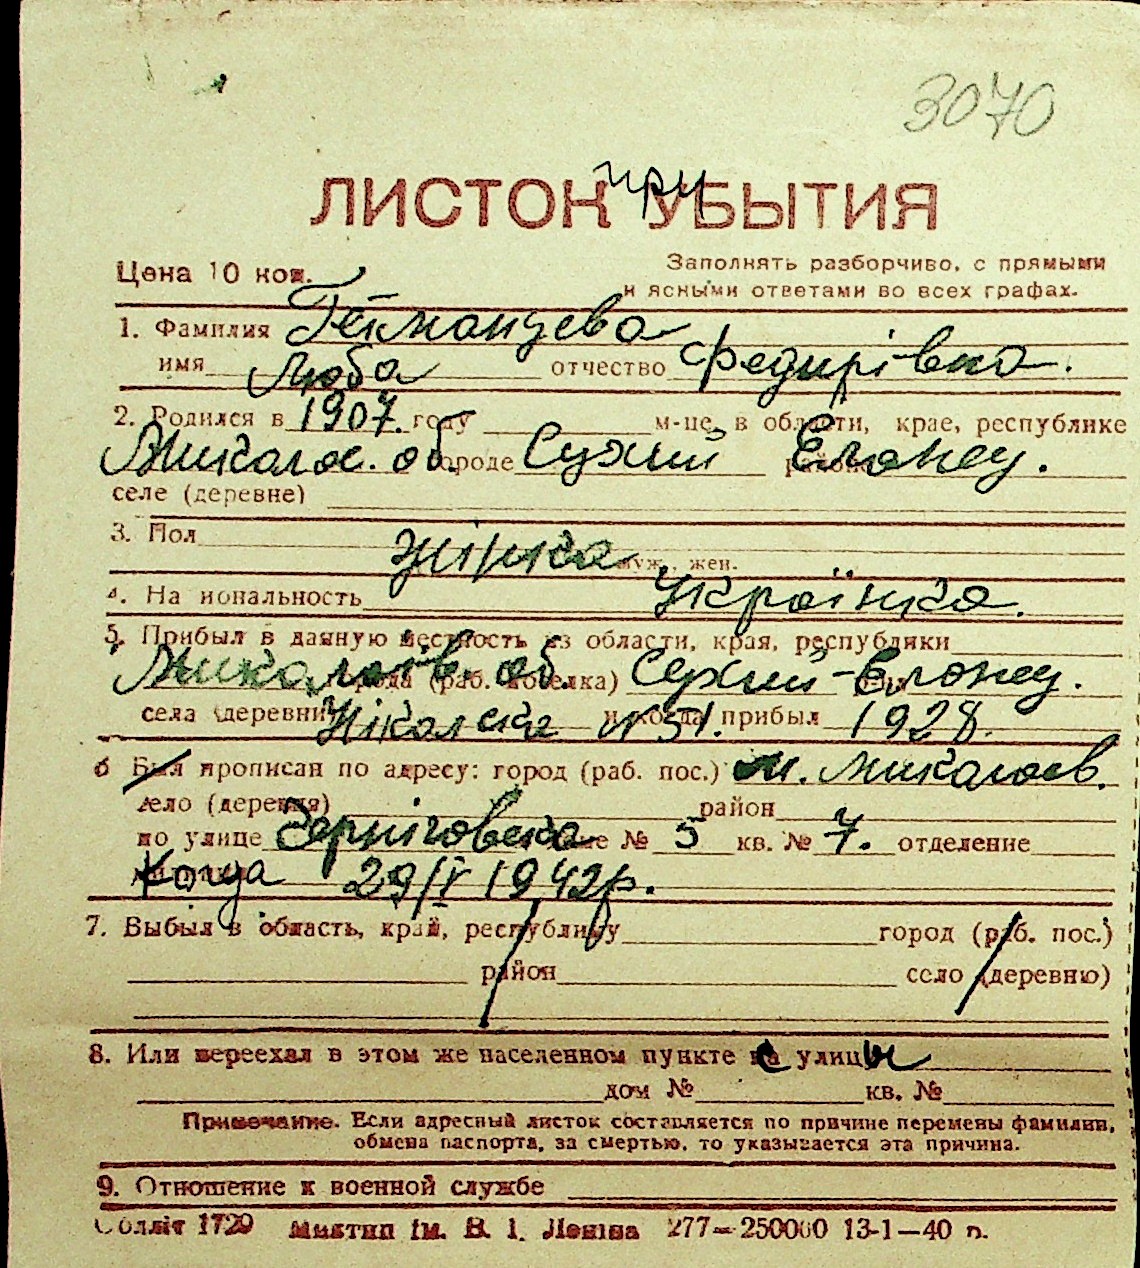 3070
ЛИСТОК при УБЫТИЯ
Цена 10 коп.
Заполнять разборчиво, с прямыми
и ясными ответами во всех графах.
1. Фамилия Гетманцева
имя Люба отчество Федирівна.
2. Родился в 1907 году м-це, в области, крае, республике
Микола. об. городе Сухий районе Еланец.
селе (деревне)
3. Пол жінка муж., жен.
4. Национальность Українка.
5. Прибыл в данную местность из области, края, республики
Миколаїв. об. города (раб. поселка) Сухий-Еланец.
села (деревни) Нікольске № 51. и когда прибыл 1928.
6 Был прописан по адресу: город (раб. пос.) м. Миколаев.
село (деревня) район
по улице Черніговська № 5 кв. № 7. отделение
Когда 29/IV 1942р.
7. Выбыл в область, край, республику город (раб. пос.)
район село (деревню)
8. Или переехал в этом же населенном пункте с улицы
дом № кв. №
Примечание. Если адресный листок составляется по причине перемены фамилии,
обмена паспорта, за смертью, то указывается эта причина.
9. Отношение к военной службе
Облліт 1729 Миктип ім. В. І. Леніна 277—250000 13-1—40 р.